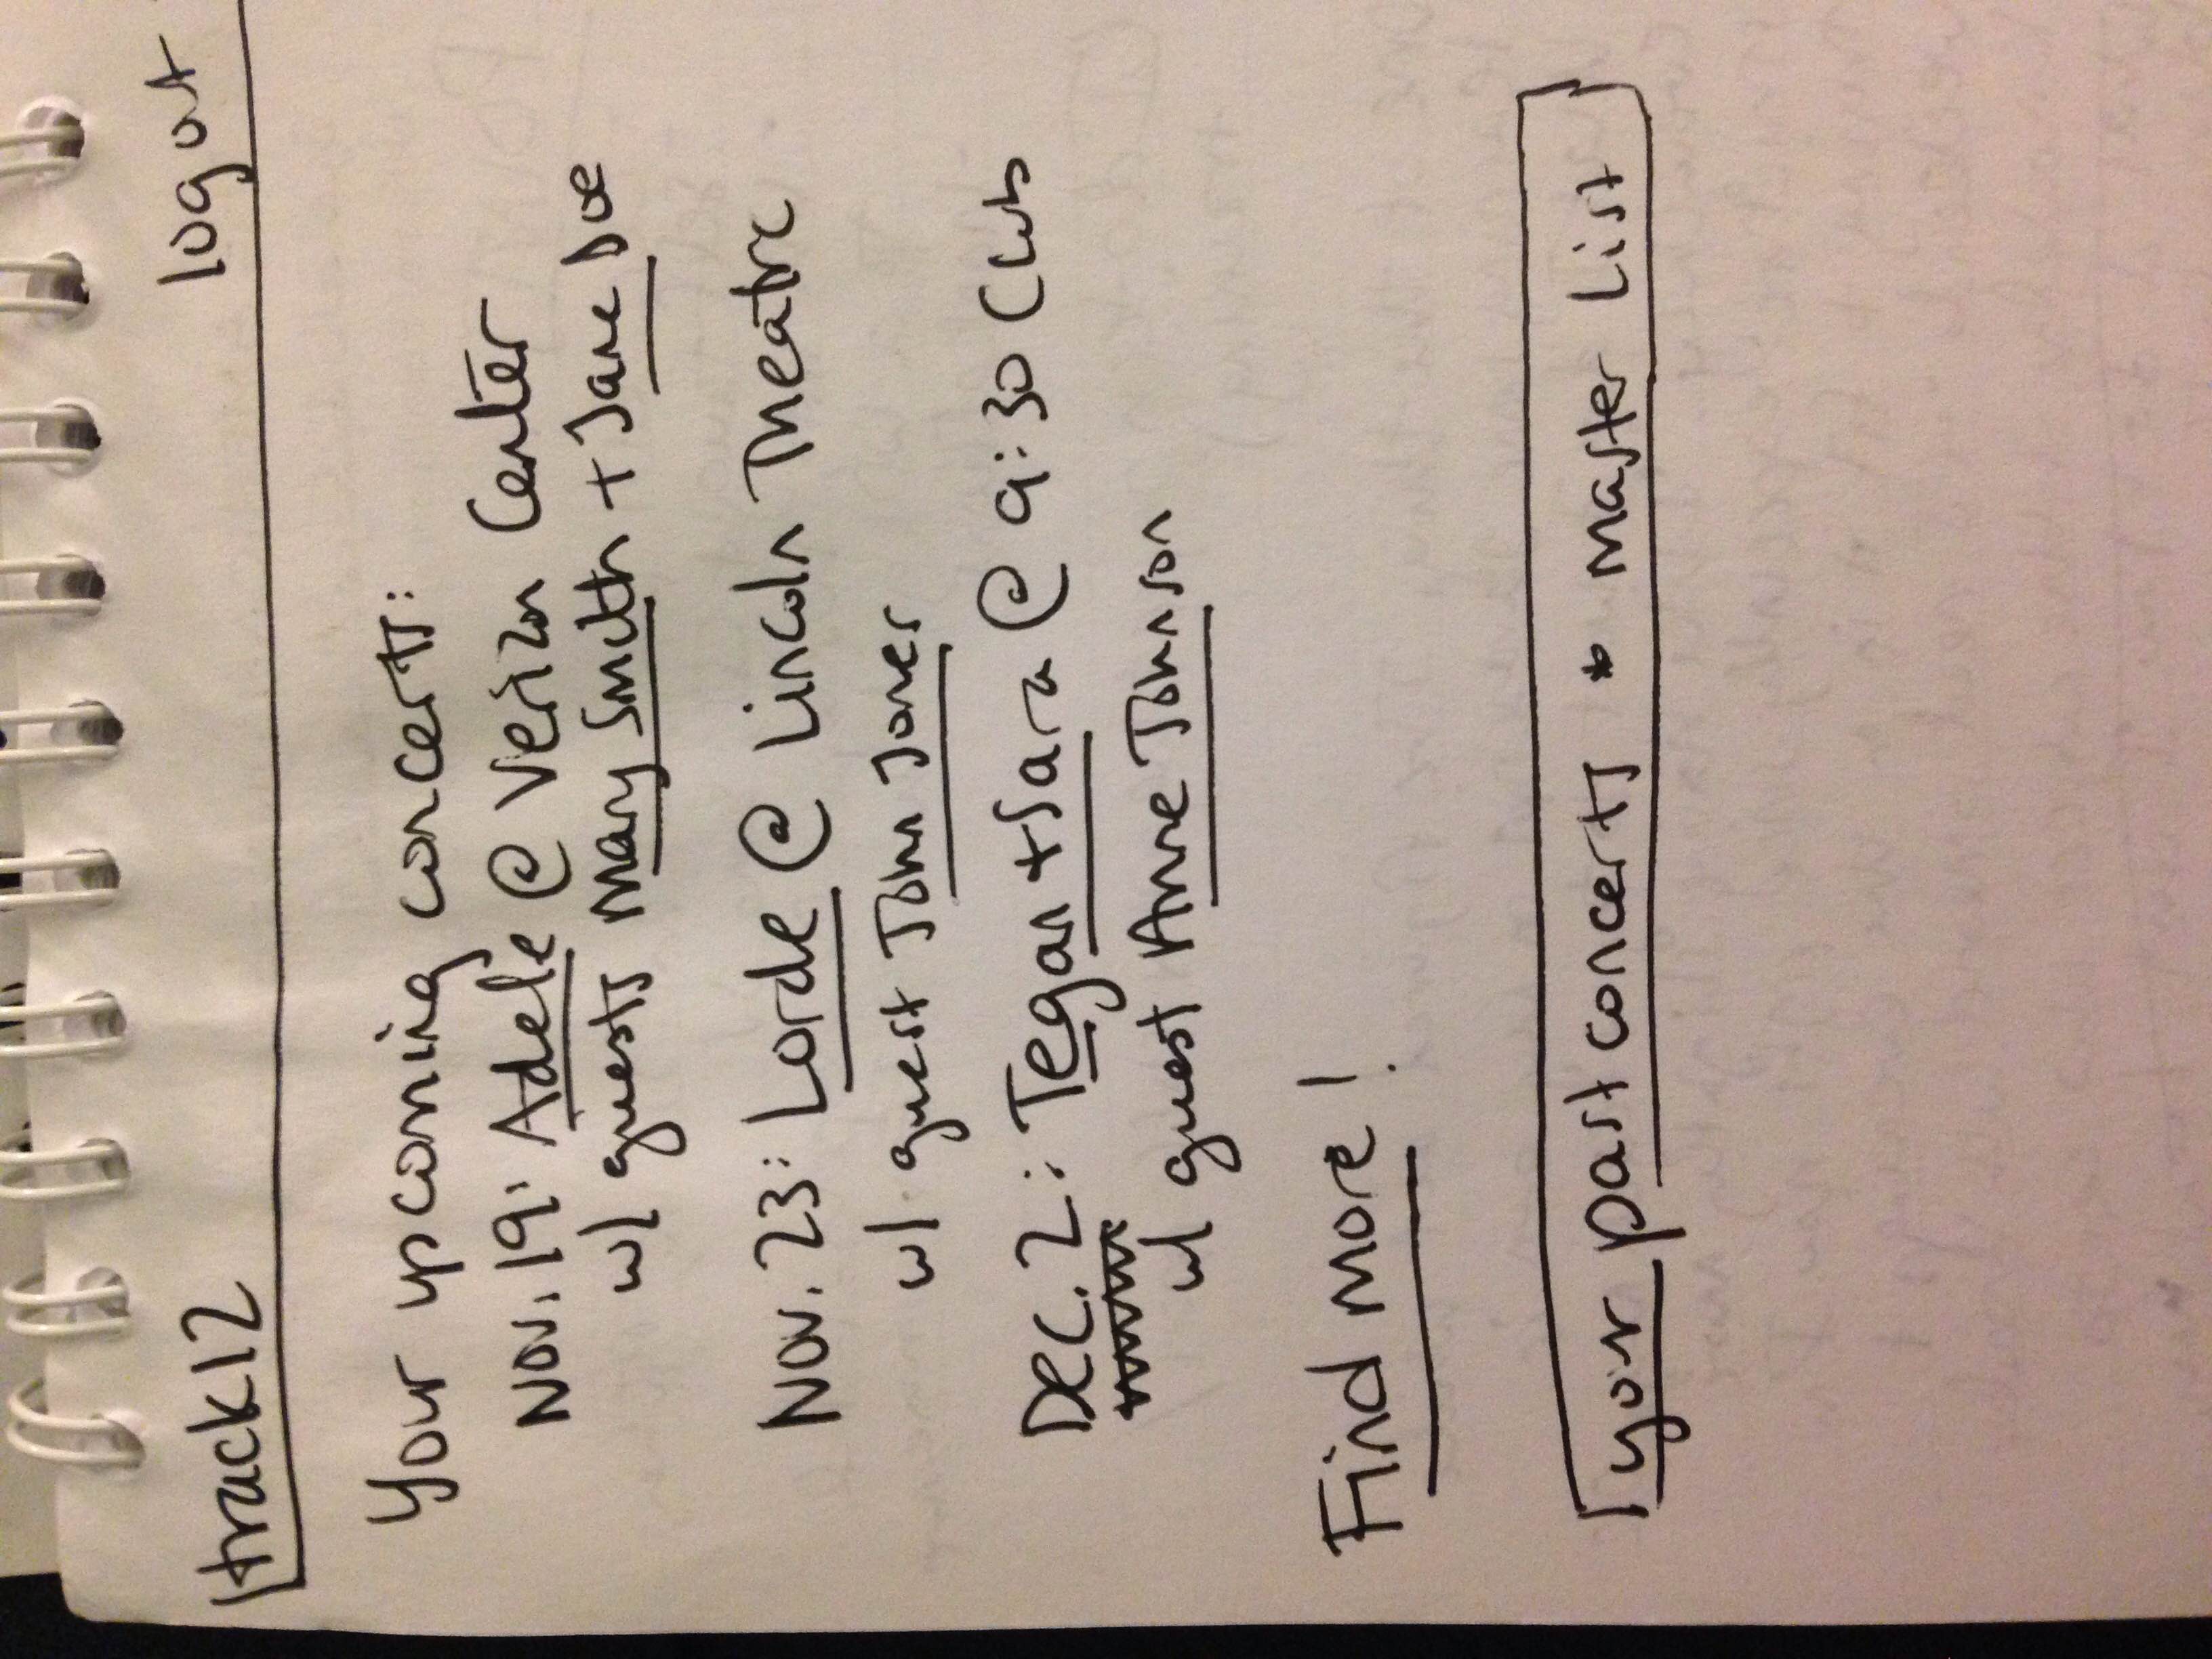 track12 logout
Your upcoming concerts:
Nov. 19: Adele @ Verizon Center
w/ guests Mary Smith + Jane Doe
Nov. 23: Lorde @ Lincoln Theatre
w/ guest John Jones
Dec. 2: Tegan + Sara @ 9:30 Club
w/ guest Anne Johnson
Find more!
your past concerts * master list